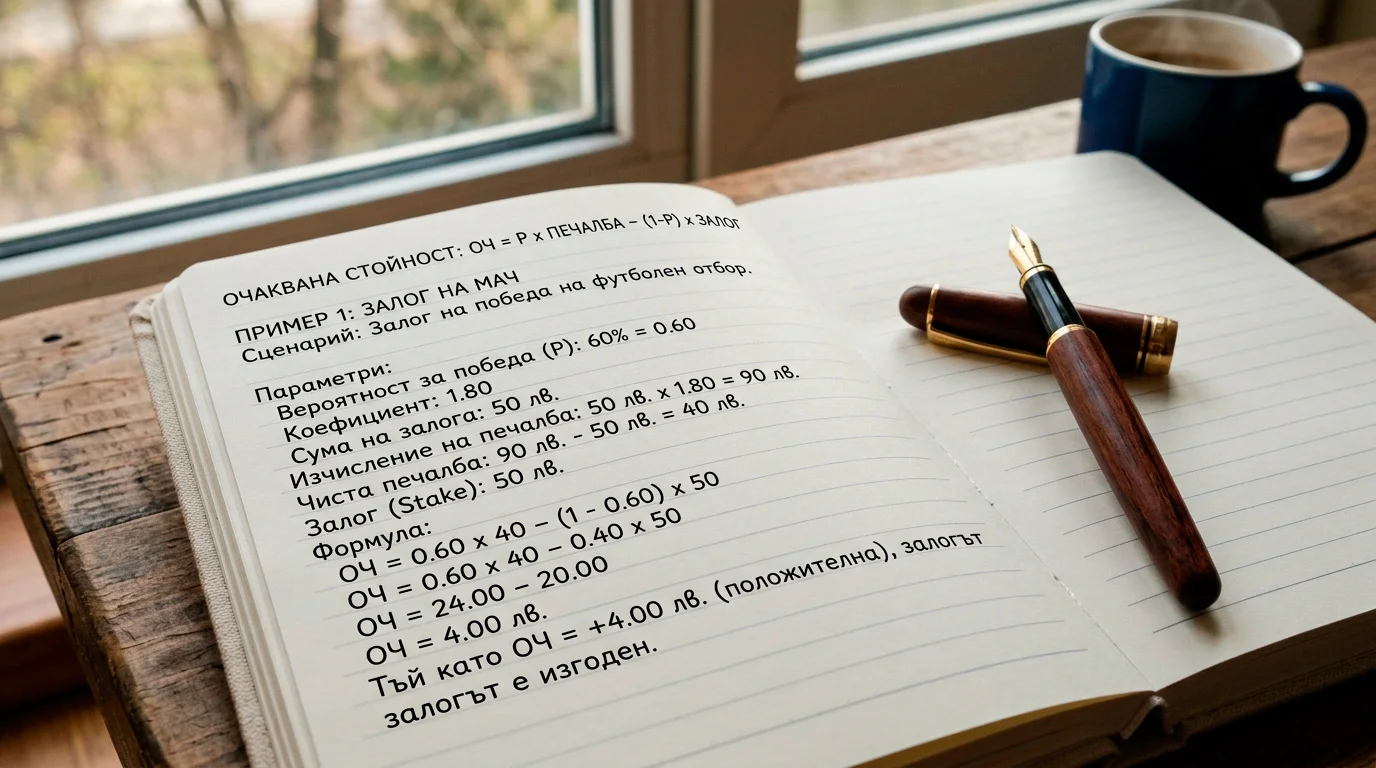 ОЧАКВАНА СТОЙНОСТ: ОЧ = P x ПЕЧАЛБА – (1-P) x ЗАЛОГ
ПРИМЕР 1: ЗАЛОГ НА МАЧ
Сценарий: Залог на победа на футболен отбор.
Параметри:
Вероятност за победа (P): 60% = 0.60
Коефициент: 1.80
Сума на залога: 50 лв.
Изчисление на печалба: 50 лв. x 1.80 = 90 лв.
Чиста печалба: 90 лв. – 50 лв. = 40 лв.
Залог (Stake): 50 лв.
Формула:
ОЧ = 0.60 x 40 – (1 - 0.60) x 50
ОЧ = 0.60 x 40 – 0.40 x 50
ОЧ = 24.00 – 20.00
ОЧ = 4.00 лв.
Тъй като ОЧ = +4.00 лв. (положителна), залогът
залогът е изгоден.